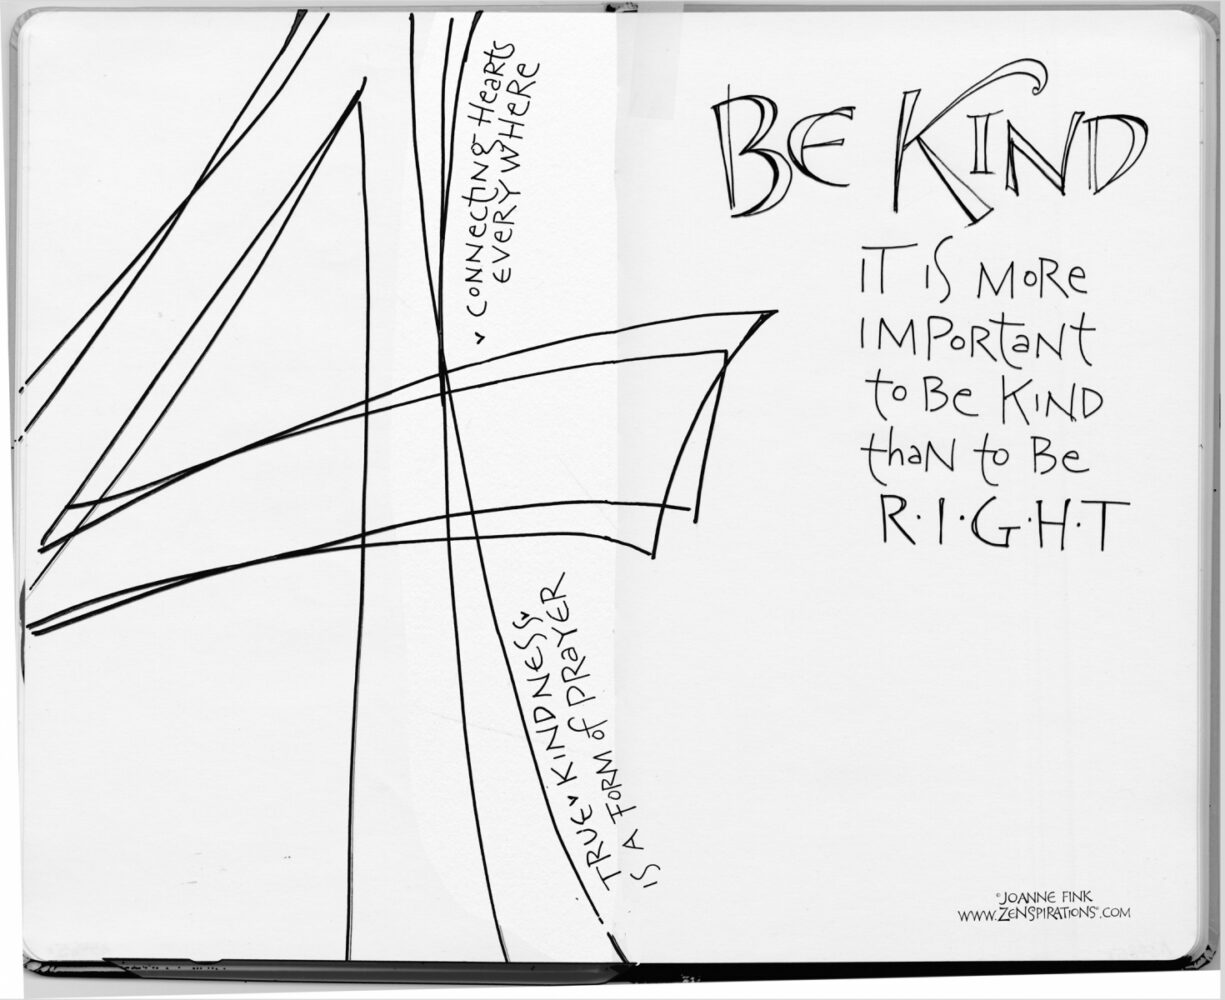 Connecting Hearts
Everywhere
True Kindness
is a form of prayer
Be Kind
It is more
important
to be kind
than to be
R·I·G·H·T
©Joanne Fink
www.Zenspirations®.com